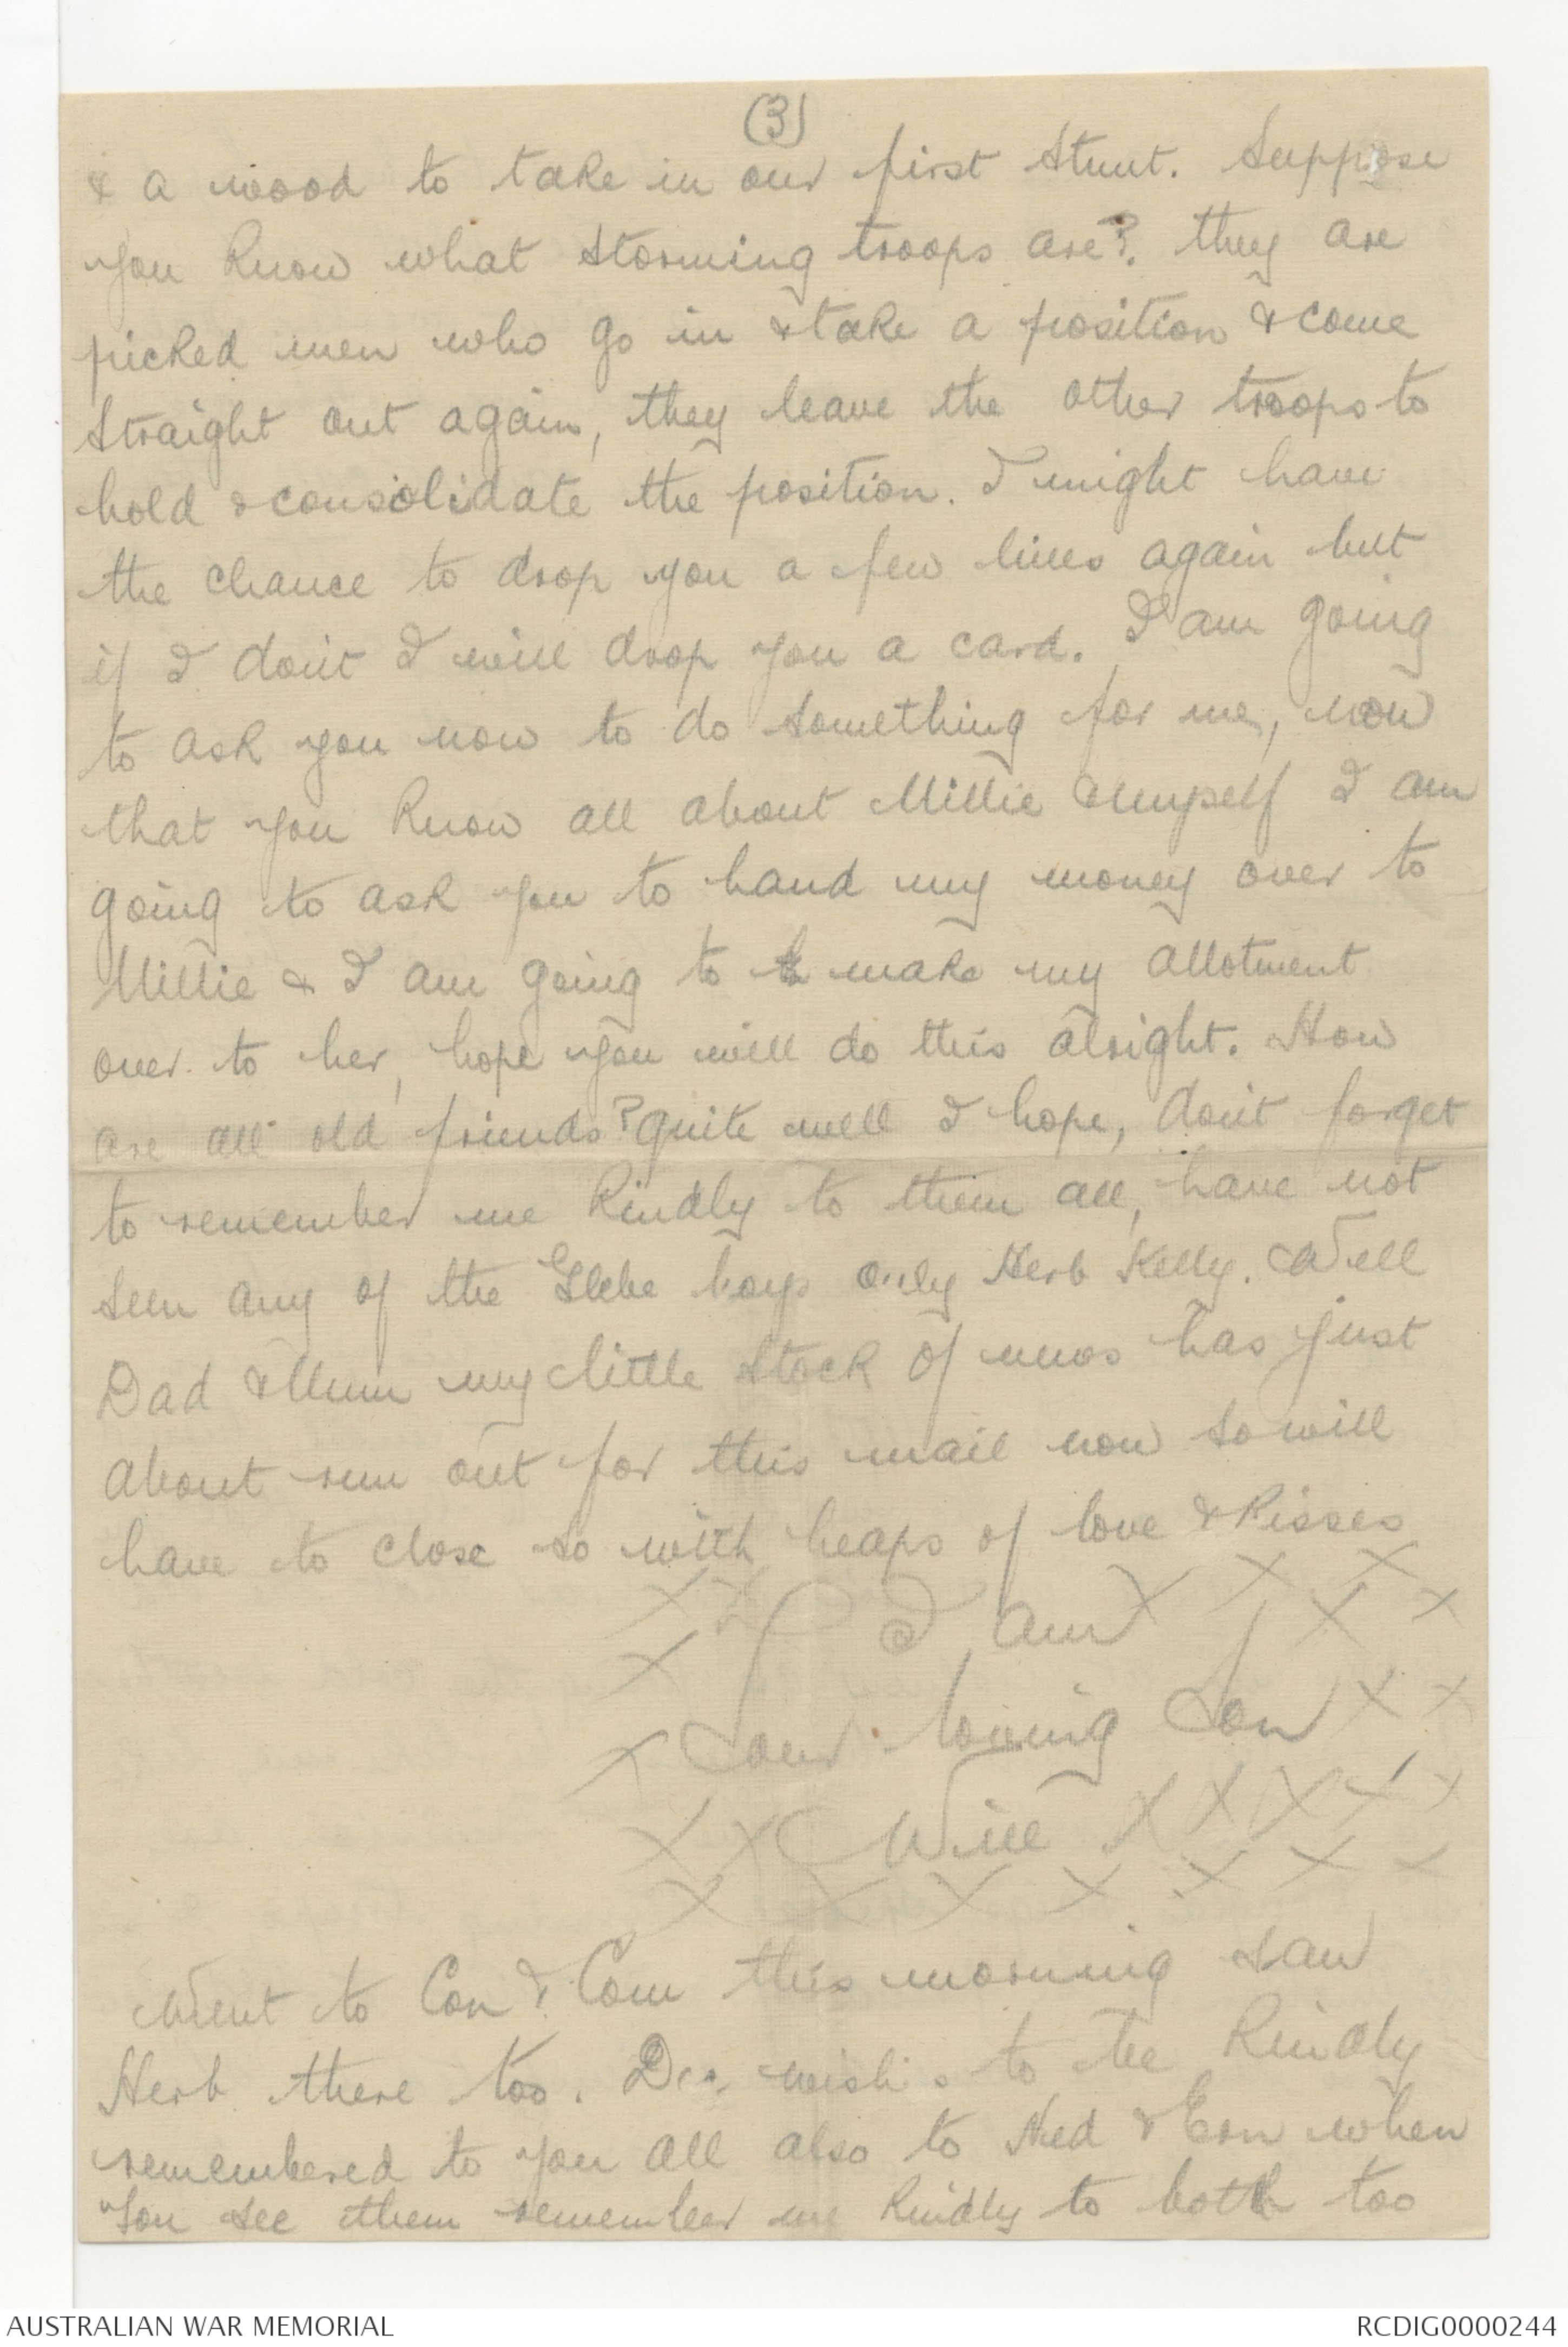 (3)
& a wood to take in our first stunt. Suppose
you know what storming troops are?. they are
picked men who go in & take a position & come
straight out again, they leave the other troops to
hold & consolidate the position. I might have
the chance to drop you a few lines again but
if I don't I will drop you a card. I am going
to ask you now to do something for me, now
that you know all about Millie & myself I am
going to ask you to hand my money over to
Millie & I am going to make my allotment
over to her, hope you will do this alright. How
are all old friends? quite well I hope, don't forget
to remember me kindly to them all, have not
seen any of the Glebe boys only Herb Kelly. Well
Dad & Mum my little stock of news has just
about run out for this mail now so will
have to close so with heaps of love & kisses
X X I am X X X X X
X
X Your loving Son X X
X X Will X X X X X
X X X X X X X
Went to Con & Com this morning saw
Herb there too. wishes to be kindly
remembered to you all also to Ned & Ern when
you see them remember me kindly to both too
AUSTRALIAN WAR MEMORIAL
RCDIG0000244